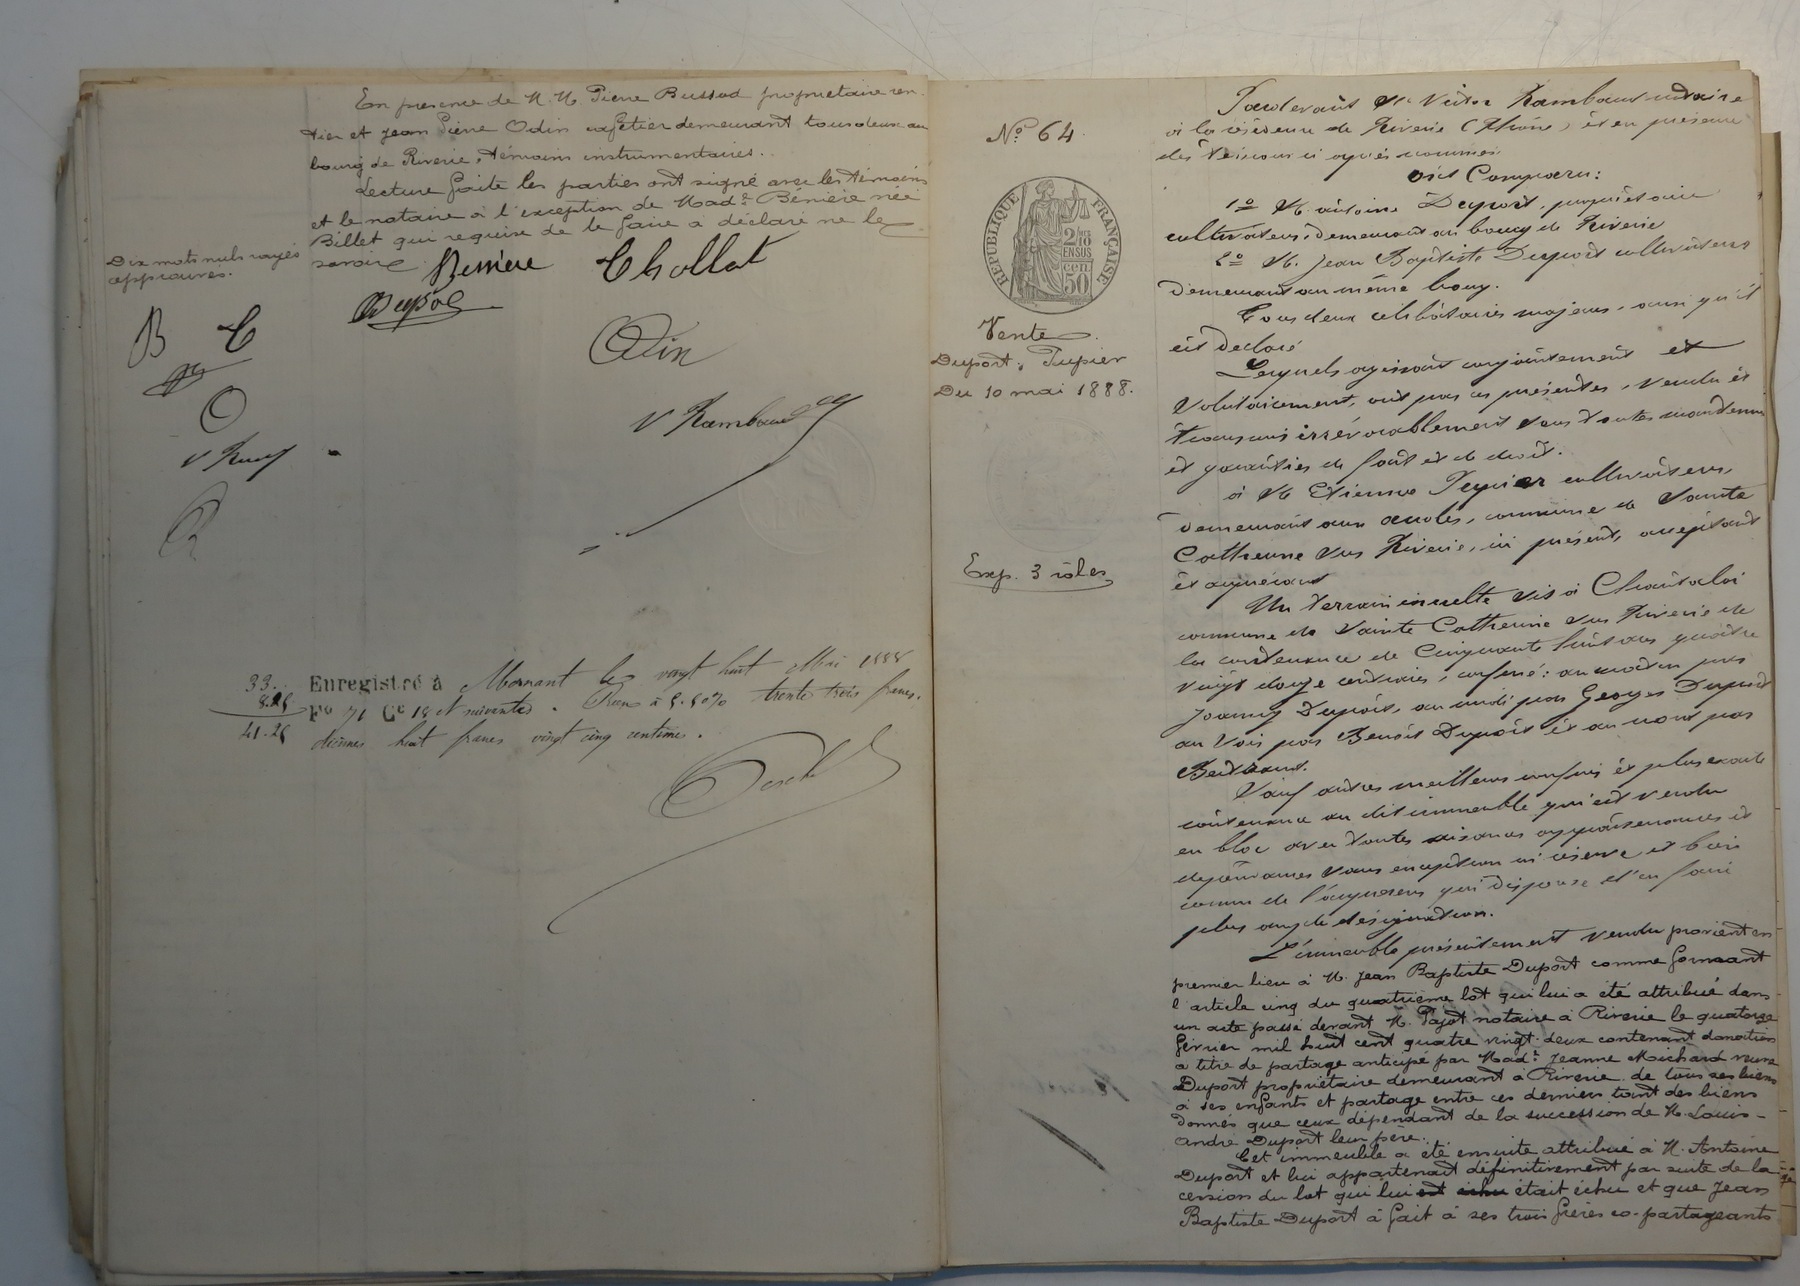 En presence de M. M. Pierre Bussod propriétaire ren-
tier et Jean Pierre Odin cafetier demeurant tous deux au
bourg de Riverie, témoins instrumentaires.
Lecture faite les parties ont signé avec les témoins
et le notaire à l'exception de Mad.e Bénière née
Billet qui requise de le faire a déclaré ne le
savoir
Dix mots nuls rayés
approuvés.
Benière Chollat
B C
Odin
O
V Rambaud
33.
8.25
41.25
Enregistré à Mornant le vingt huit Mai 1888
Fo 71 Ce 18 et suivantes. à 5.50% trente trois francs.
décimes huit francs vingt cinq centimes.
No 64.
RÉPUBLIQUE FRANÇAISE
2/10
EN SUS
50 cen.
Vente
Duport, Pupier
Du 10 mai 1888.
Exp. 3 rôles
Pardevant Me Victor Rambaud notaire
à la résidence de Riverie (Rhône) et en présence
des témoins ci après nommés
Ont Comparu:
1o M. Antoine Duport, propriétaire
cultivateur, demeurant au bourg de Riverie
2o M. Jean Baptiste Duport cultivateur
demeurant au même bourg.
Tous deux célibataires majeurs, ainsi qu'il
est déclaré
Lesquels agissant conjointement et
volontairement, ont par ces présentes, vendu et
transmis irrévocablement sous toutes
et garanties de fait et de droit.
à M Etienne Pupier cultivateur,
demeurant aux commune de Sainte
Catherine sur Riverie, ici présent, acceptant
et acquérant
Un terrain inculte sis à
commune de Sainte Catherine sur Riverie de
la contenance de Cinquante huit ares quatre
vingt douze centiares, confiné: au matin par
Joanny Duport, au midi par Georges Duport
au soir par Benoît Duport et au nord par
Sauf autres meilleurs confins et plus exacte
contenance au dit immeuble qui est vendu
en bloc avec toutes aisances appartenances et
dépendances sans exception ni réserve et bien
connu de l'acquéreur qui dispense d'en faire
plus ample désignation.
L'immeuble présentement vendu provient en
premier lieu à M. Jean Baptiste Duport comme formant
l'article cinq du quatrième lot qui lui a été attribué dans
un acte passé devant M. Pajot notaire à Riverie le quatorze
février mil huit cent quatre vingt deux contenant donation
à titre de partage anticipé par Mad.e Jeanne Michard veuve
Duport propriétaire demeurant à Riverie de tous ses biens
à ses enfants et partage entre ces derniers tant des biens
donnés que ceux dépendant de la succession de M. Louis-
André Duport leur père.
Cet immeuble a été ensuite attribué à M. Antoine
Duport et lui appartenait définitivement par suite de la
cession du lot qui lui était échu et que Jean
Baptiste Duport à fait à ses trois frères co-partageants